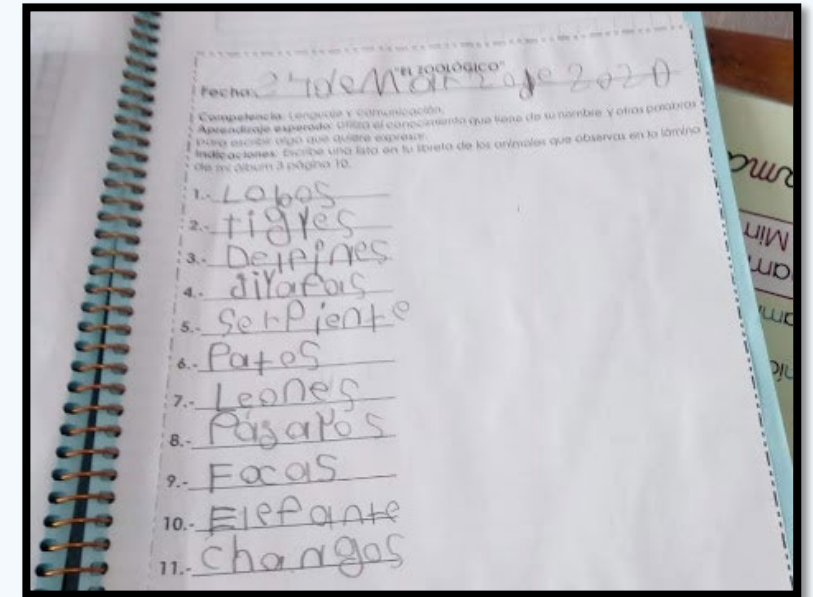 "EL ZOOLÓGICO"
Fecha: 24 de Mar zo de 2020
Competencia: Lenguaje y comunicación.
Aprendizaje esperado: Utiliza el conocimiento que tiene de su nombre y otras palabras
para escribir algo que quiere expresar.
Indicaciones: Escribe una lista en tu libreta de los animales que observas en la lámina
de mi álbum 3 página 10.
1.- Lobos
2.- tigres
3.- Delfines
4.- jirafas
5.- Serpiente
6.- Patos
7.- Leones
8.- Págaros
9.- Focas
10.- Elefante
11.- changos